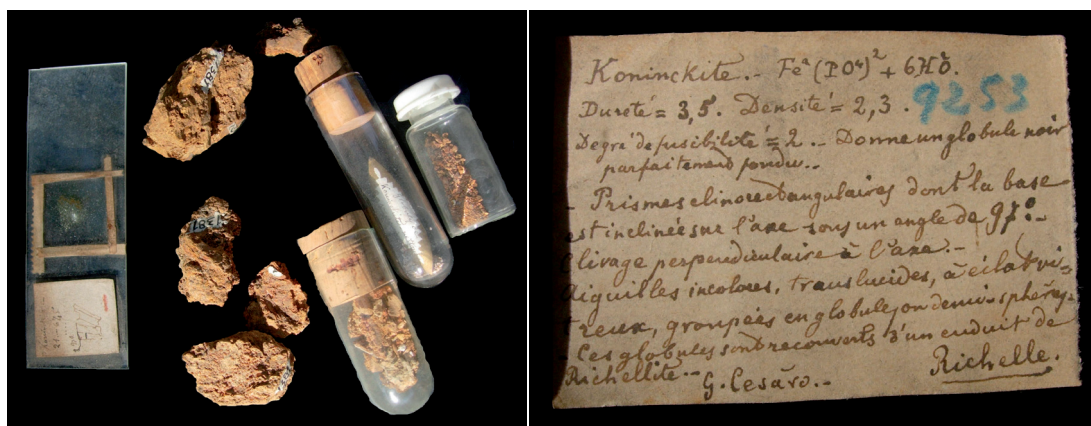 Koninckite.- Fe²(PO⁴)² + 6H²O.
Dureté = 3,5. Densité = 2,3. 9253
Degré de fusibilité = 2.- Donne un globule noir
parfaitement fondu.-
- Prismes clinorectangulaires dont la base
est inclinée sur l'axe sous un angle de 97°.-
Clivage perpendiculaire à l'axe.-
Aiguilles incolores, translucides, à éclat vi-
treux, groupées en globules ou demi-sphères.
Les globules sont recouverts d'un enduit de
Richellite.-
G. Cesàro.-
Richelle.